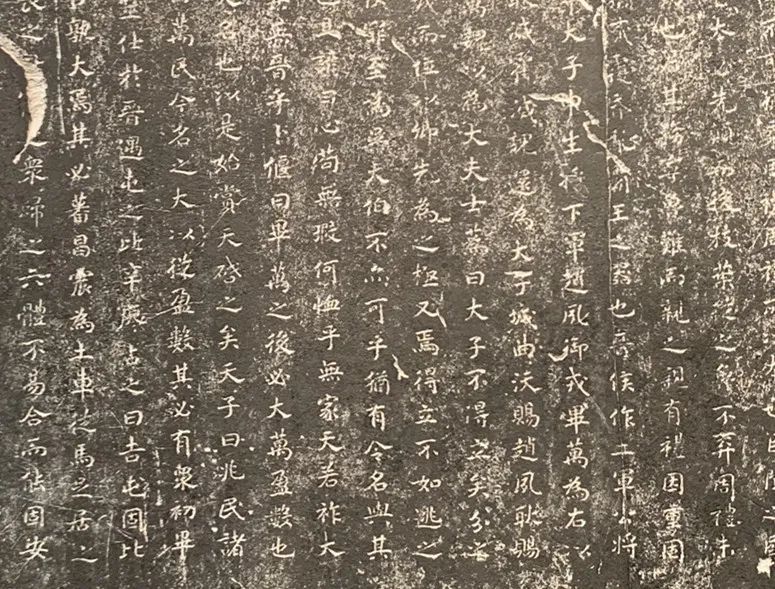 必先顛而後枝葉從之魯不弃周禮未
動也君其務寧魯難而親之親有禮因重固
攜貳覆昏亂霸王之器也晉侯作二軍公將
軍大子申生將下軍趙夙御戎畢萬為右以
滅霍滅魏還為大子城曲沃賜趙夙耿賜
萬魏以為大夫士蒍曰大子不得立矣分之
城而位以卿先為之極又焉得立不如逃之
使罪至為吳大伯不亦可乎猶有令名與其
也且諺曰心苟無瑕何恤乎無家天若祚大
其無晉乎卜偃曰畢萬之後必大萬盈數也
大名也以是始賞天啓之矣天子曰兆民諸
萬民今名之大以從盈數其必有衆初畢
筮仕於晉遇屯之比辛廖占之曰吉屯固比
孰大焉其必蕃昌震為土車從馬足居之
長之 衆歸之六體不易合而能固安